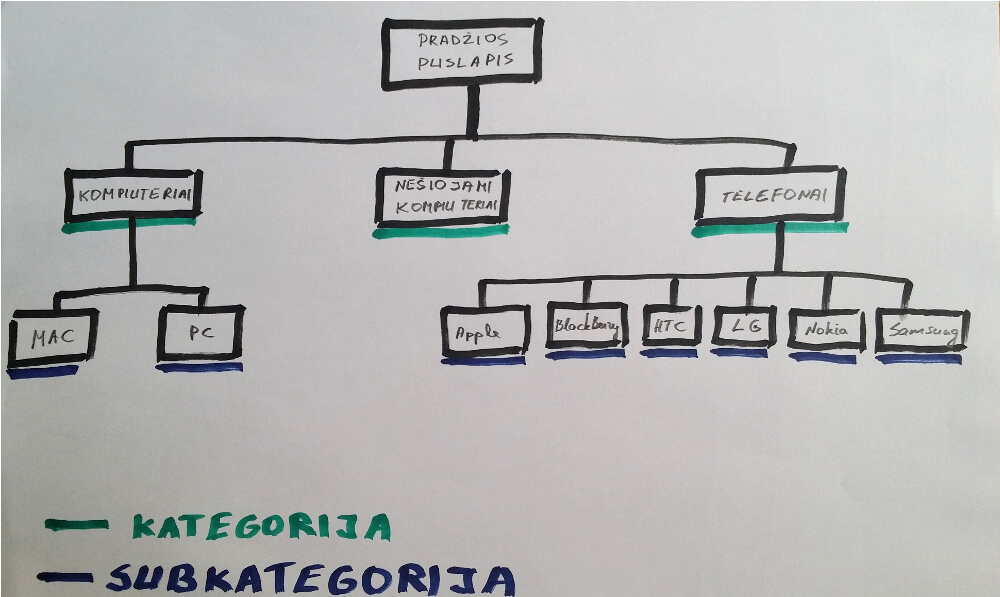 PRADŽIOS
PUSLAPIS
KOMPIUTERIAI
NEŠIOJAMI
KOMPIUTERIAI
TELEFONAI
MAC
PC
Apple
BlackBerry
HTC
LG
Nokia
Samsung
KATEGORIJA
SUBKATEGORIJA